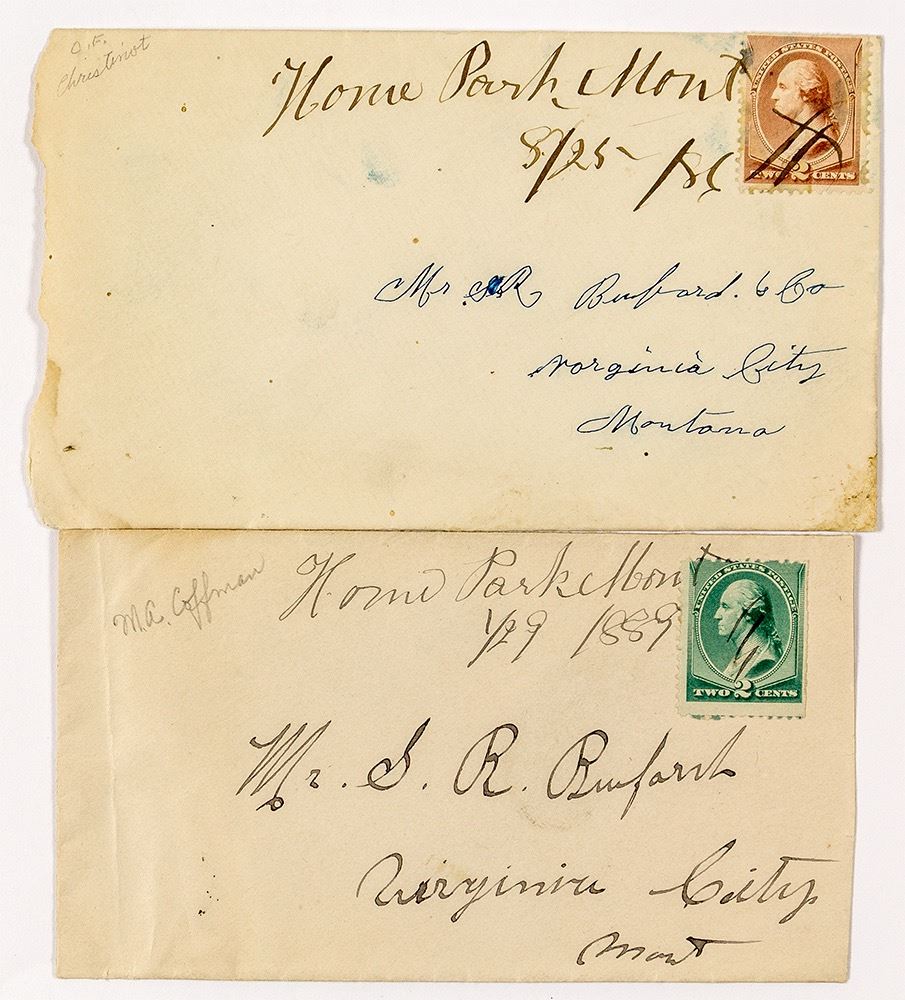 Christinot
Home Park Mont
8/25 /86
UNITED STATES POSTAGE
TWO 2 CENTS
Mr. S R Buford. & Co
Vorginia City
Montana
W.A. Coffman
Home Park Mont
1/29 1889
UNITED STATES POSTAGE
TWO 2 CENTS
Mr. S. R. Buford
Virginia City
Mont